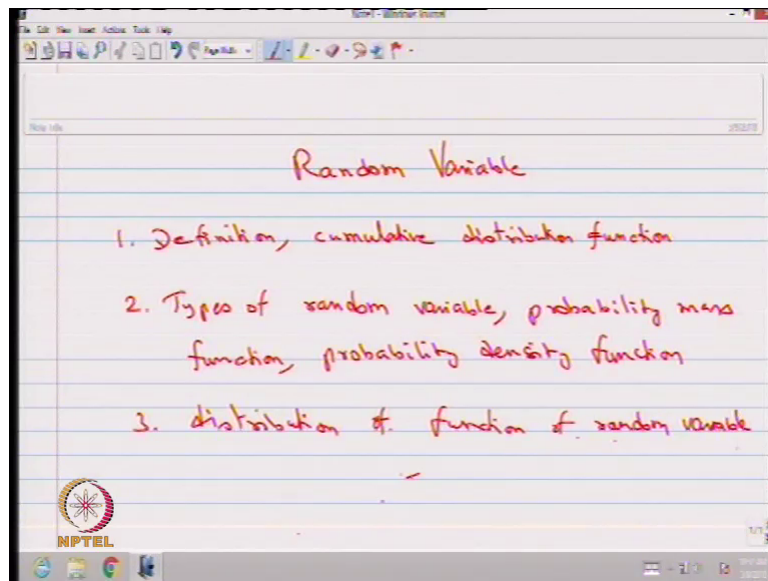 Note1 - Windows Journal
File Edit View Insert Actions Tools Help
Random Variable
1. Definition, cumulative distribution function
2. Types of random variable, probability mass
function, probability density function
3. distribution of function of random variable
NPTEL
1/1